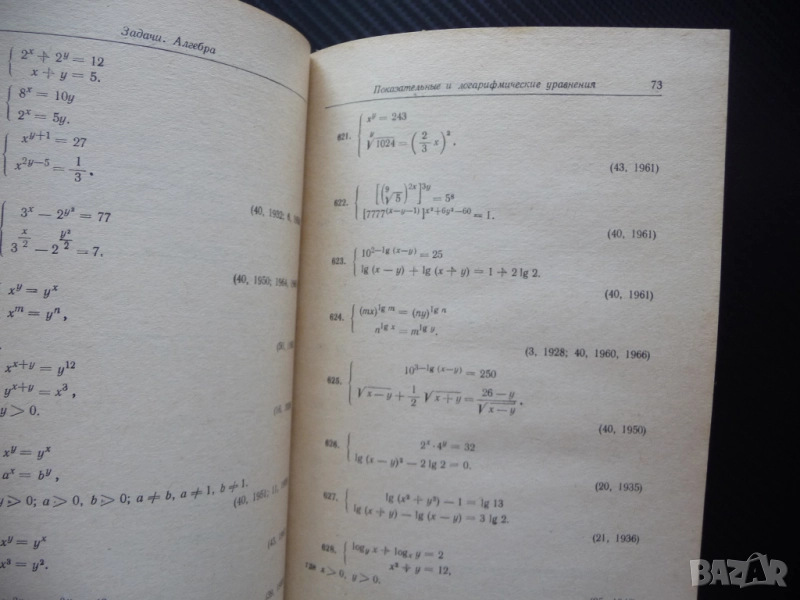 Задачи. Алгебра
2ˣ + 2ʸ = 12
x + y = 5.
8ˣ = 10y
2ˣ = 5y.
x^{y+1} = 27
x^{2y−5} = 1/3,
3ˣ − 2^{y²} = 77
3^{x/2} − 2^{y²/2} = 7.
(40, 1950;
xʸ = yˣ
xᵐ = yⁿ,
x^{x+y} = y¹²
y^{x+y} = x³,
y > 0.
xʸ = yˣ
aˣ = bʸ,
y > 0; a > 0, b > 0; a ≠ b, a ≠ 1, b ≠ 1.
xʸ = yˣ
x³ = y².
Показательные и логарифмические уравнения 73
621. xʸ = 243
ʸ√1024 = (2/3 x)².
(43, 1961)
622. [(⁹√5)^{2x}]^{3y} = 5⁸
[7777^{(x−y−1)}]^{x²+6y²−60} = 1.
(40, 1961)
623. 10^{2−lg (x−y)} = 25
lg (x − y) + lg (x + y) = 1 + 2 lg 2.
(40, 1961)
624. (mx)^{lg m} = (ny)^{lg n}
n^{lg x} = m^{lg y}.
(3, 1928; 40, 1960, 1966)
625. 10^{3−lg (x−y)} = 250
√(x − y) + 1/2 √(x + y) = (26 − y)/√(x − y).
(40, 1950)
626. 2ˣ · 4ʸ = 32
lg (x − y)² − 2 lg 2 = 0.
(20, 1935)
627. lg (x² + y²) − 1 = lg 13
lg (x + y) − lg (x − y) = 3 lg 2.
(21, 1936)
628. log_y x + logₓ y = 2
x² + y = 12,
где x > 0, y > 0.
BAZAR